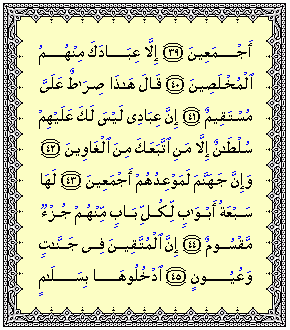 أَجْمَعِينَ ﴿٣٩﴾ إِلَّا عِبَادَكَ مِنْهُمُ
ٱلْمُخْلَصِينَ ﴿٤٠﴾ قَالَ هَٰذَا صِرَٰطٌ عَلَىَّ
مُسْتَقِيمٌ ﴿٤١﴾ إِنَّ عِبَادِى لَيْسَ لَكَ عَلَيْهِمْ
سُلْطَٰنٌ إِلَّا مَنِ ٱتَّبَعَكَ مِنَ ٱلْغَاوِينَ ﴿٤٢﴾
وَإِنَّ جَهَنَّمَ لَمَوْعِدُهُمْ أَجْمَعِينَ ﴿٤٣﴾ لَهَا
سَبْعَةُ أَبْوَٰبٍ لِّكُلِّ بَابٍ مِّنْهُمْ جُزْءٌ
مَّقْسُومٌ ﴿٤٤﴾ إِنَّ ٱلْمُتَّقِينَ فِى جَنَّٰتٍ
وَعُيُونٍ ﴿٤٥﴾ ٱدْخُلُوهَا بِسَلَٰمٍ